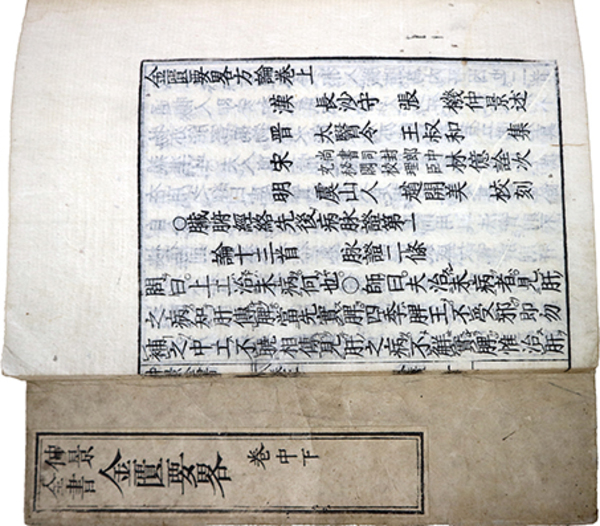 金匱要畧方論卷上
漢 長沙守 張 機仲景 述
晋 太醫令 王叔和 集
宋 尚書司封郎中充秘閣校理臣 林億 詮次
明 虞山人 趙開美 校刻
○臟腑經絡先後病脉證第一
論十三首 脉證二條
問曰上工治未病何也○師曰夫治未病者見肝
之病知肝傳脾當先實脾四季脾王不受邪即勿
補之中工不曉相傳見肝之病不解實脾惟治肝
仲景
全書
金匱要畧
卷中下